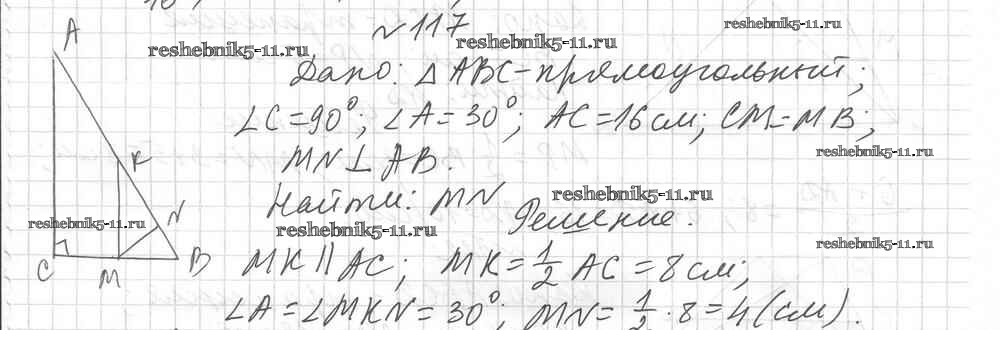 №117
Дано: △ABC - прямоугольный;
∠C = 90°; ∠A = 30°; AC = 16 см; CM = MB;
MN ⊥ AB.
Найти: MN
Решение.
MK || AC; MK = 1/2 AC = 8 см;
∠A = ∠MKN = 30°; MN = 1/2 · 8 = 4 (см).
A
K
N
C
M
B
reshebnik5-11.ru
reshebnik5-11.ru
reshebnik5-11.ru
reshebnik5-11.ru
reshebnik5-11.ru
reshebnik5-11.ru
reshebnik5-11.ru
reshebnik5-11.ru